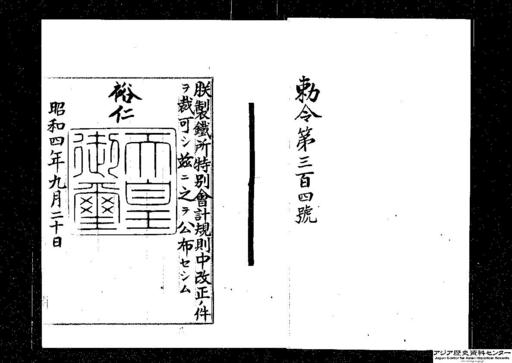 勅令第三百四號
朕製鐵所特別會計規則中改正ノ件
ヲ裁可シ茲ニ之ヲ公布セシム
裕仁
天皇
御璽
昭和四年九月二十日
アジア歴史資料センター
Japan Center for Asian Historical Records